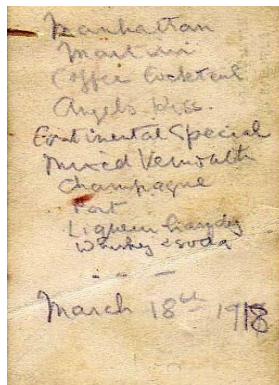 Manhattan
Martini
Coffee Cocktail
Angels Kiss.
Continental Special
Mixed Vermouth
Champagne
Port
Liqueur brandy
Whiskey & soda
March 18th 1918